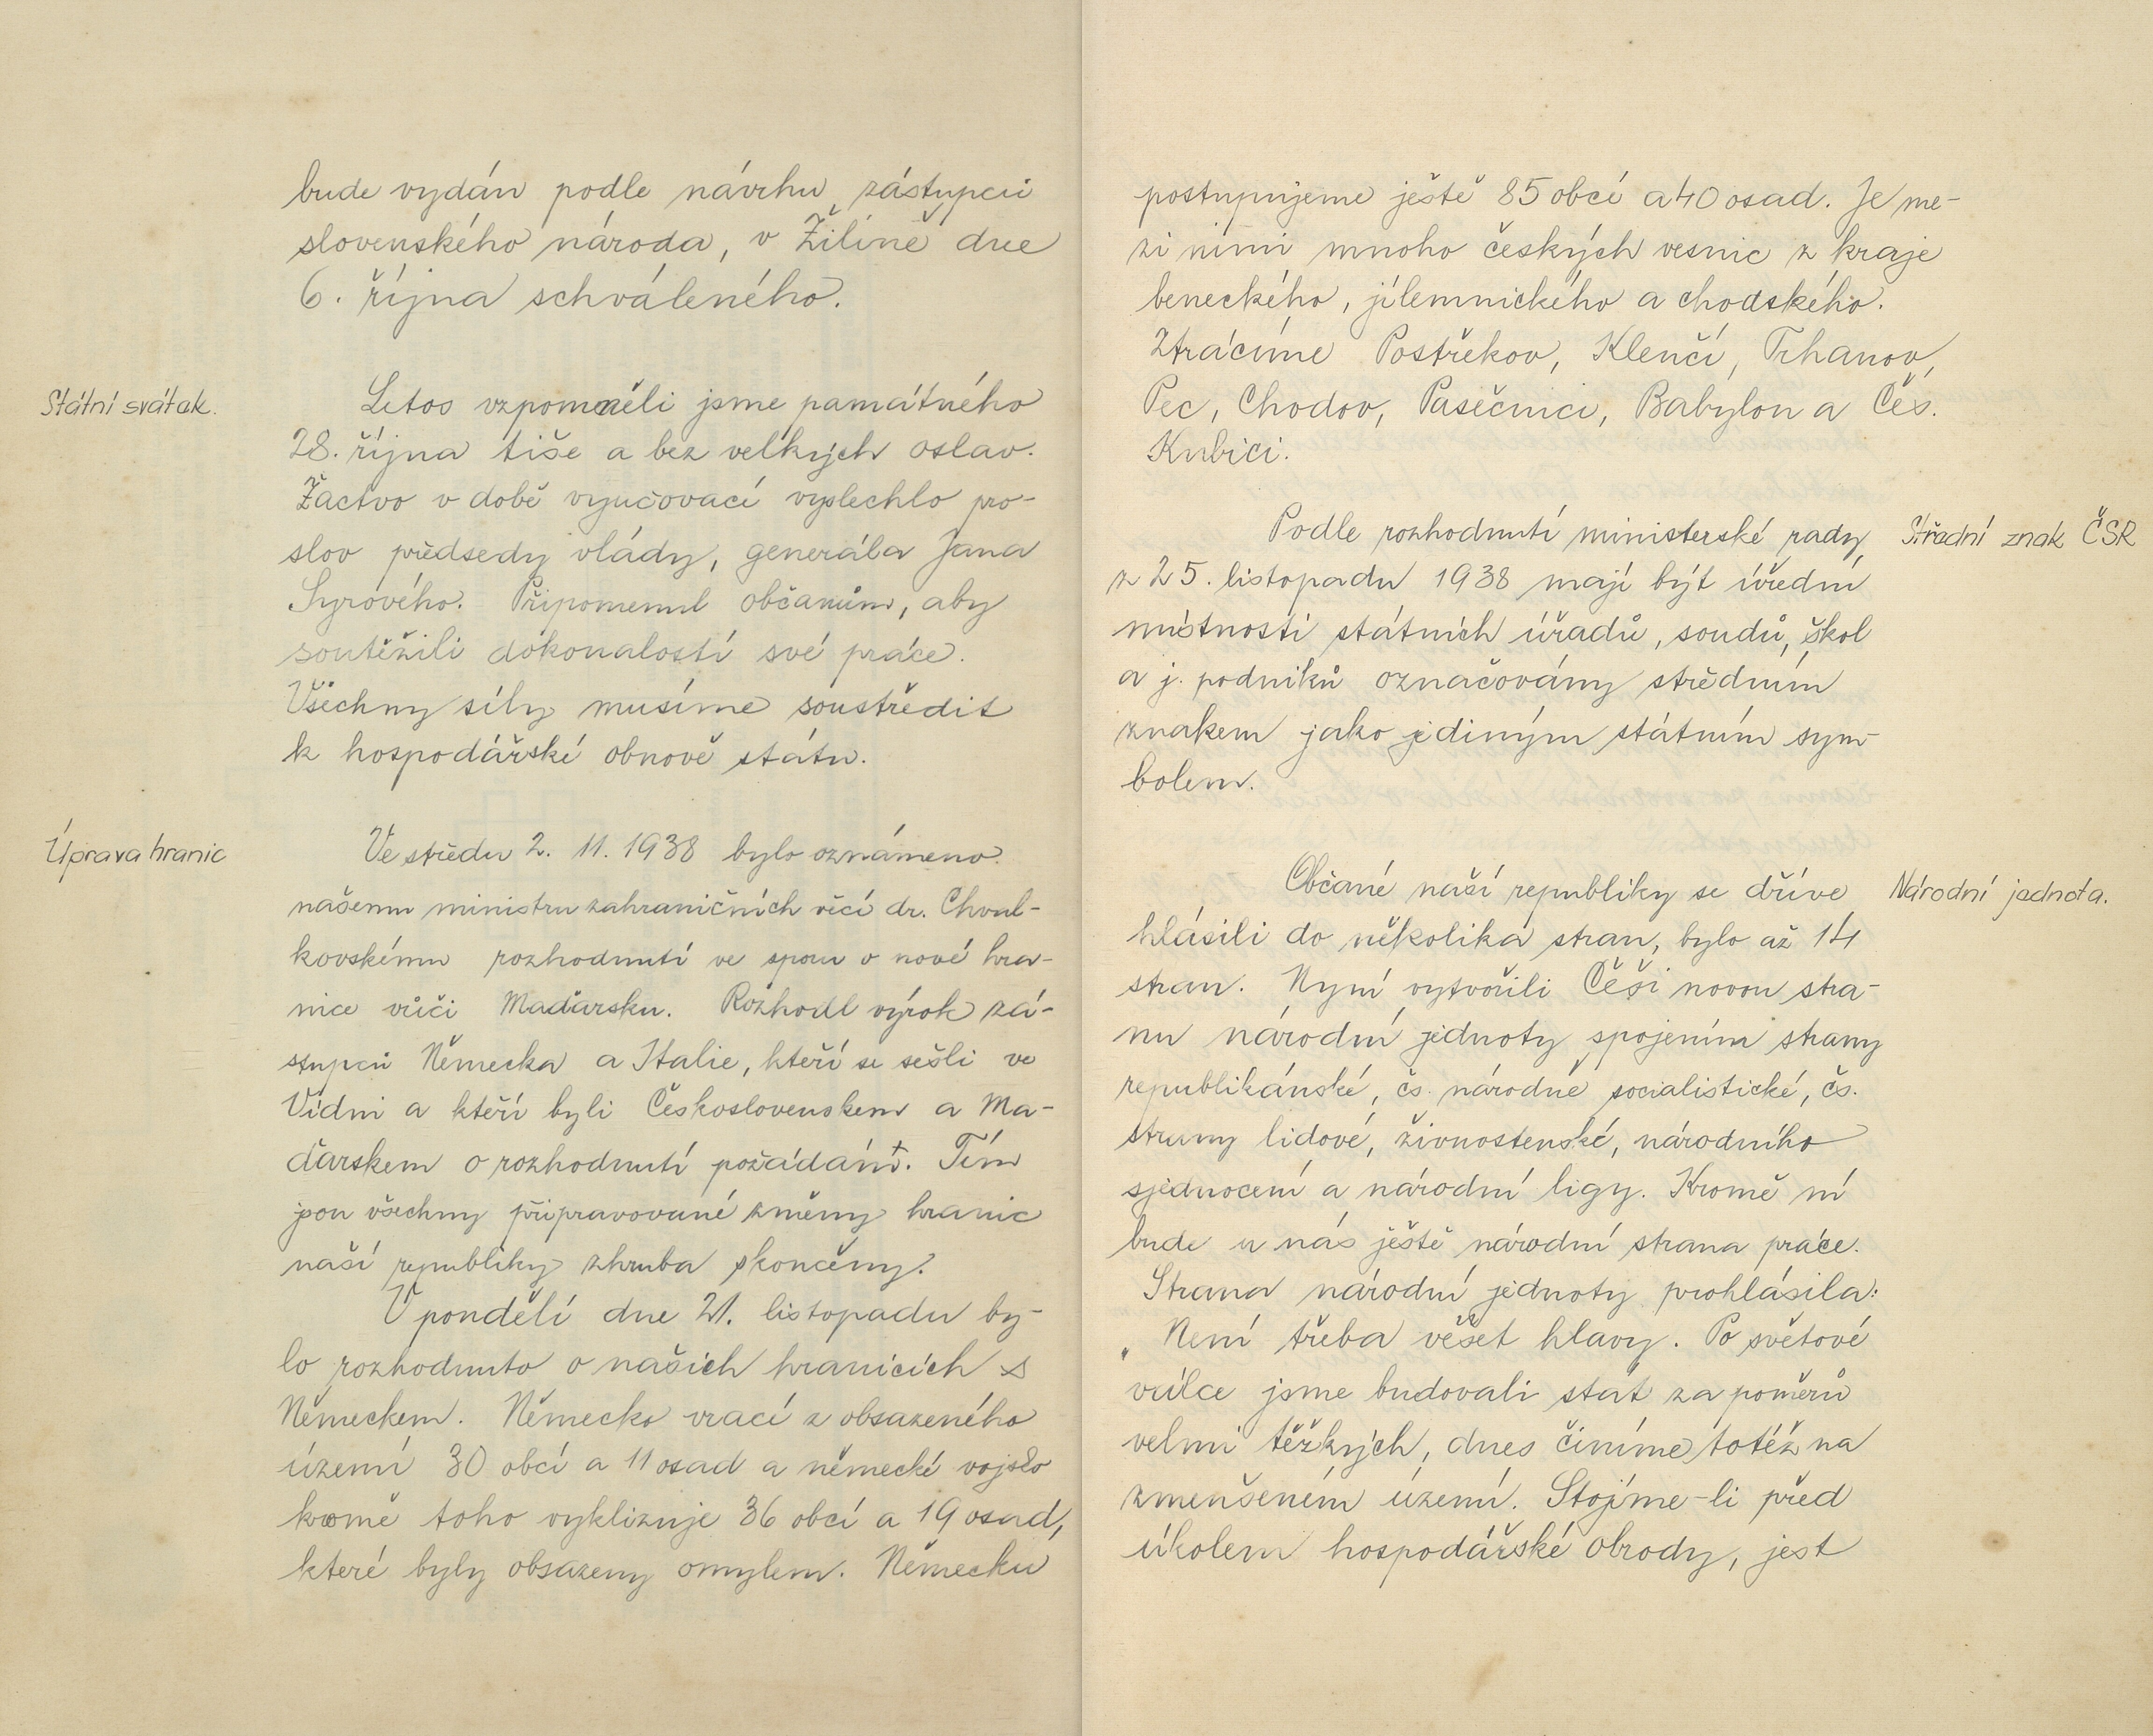 bude vydán podle návrhu zástupců
slovenského národa, v Žilině dne
6. října schváleného.
Státní svátek.
Letos vzpomněli jsme památného
28. října tiše a bez velkých oslav.
Žactvo v době vyučovací vyslechlo pro-
slov předsedy vlády, generála Jana
Syrového. Připomenul občanům, aby
soutěžili dokonalostí své práce.
Všechny síly musíme soustředit
k hospodářské obnově státu.
Úprava hranic
Ve středu 2. 11. 1938 bylo oznámeno
našemu ministru zahraničních věcí dr. Chval-
kovskému rozhodnutí ve sporu o nové hra-
nice vůči Maďarsku. Rozhodl výrok zá-
stupců Německa a Italie, kteří se sešli ve
Vídni a kteří byli Československem a Ma-
ďarskem o rozhodnutí požádáni. Tím
jsou všechny připravované změny hranic
naší republiky zhruba skončeny.
V pondělí dne 21. listopadu by-
lo rozhodnuto o našich hranicích s
Německem. Německo vrací z obsazeného
území 30 obcí a 11 osad a německé vojsko
kromě toho vyklizuje 36 obcí a 19 osad,
které byly obsazeny omylem. Německu
postupujeme ještě 85 obcí a 40 osad. Je me-
zi nimi mnoho českých vesnic z kraje
beneckého, jilemnického a chodského.
Ztrácíme Postřekov, Klenčí, Trhanov,
Pec, Chodov, Pasečnici, Babylon a Čes.
Kubici.
Střední znak ČSR
Podle rozhodnutí ministerské rady
z 25. listopadu 1938 mají být úřední
místnosti státních úřadů, soudů, škol
a j. podniků označovány středním
znakem jako jediným státním sym-
bolem.
Národní jednota.
Občané naší republiky se dříve
hlásili do několika stran, bylo až 14
stran. Nyní vytvořili Češi novou stra-
nu národní jednoty spojením strany
republikánské, čs. národně socialistické, čs.
strany lidové, živnostenské, národního
sjednocení a národní ligy. Kromě ní
bude u nás ještě národní strana práce.
Strana národní jednoty prohlásila:
„Není třeba věšet hlavy. Po světové
válce jsme budovali stát za poměrů
velmi těžkých, dnes činíme totéž na
zmenšeném území. Stojíme-li před
úkolem hospodářské obrody, jest